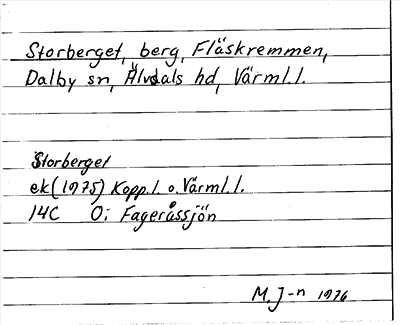 Storberget, berg, Fläskremmen,
Dalby sn, Älvdals hd, Värml.l.
Storberget
ek (1975) Kopp.l. o. Värml.l.
14C O: Fageråssjön
M. J-n 1976